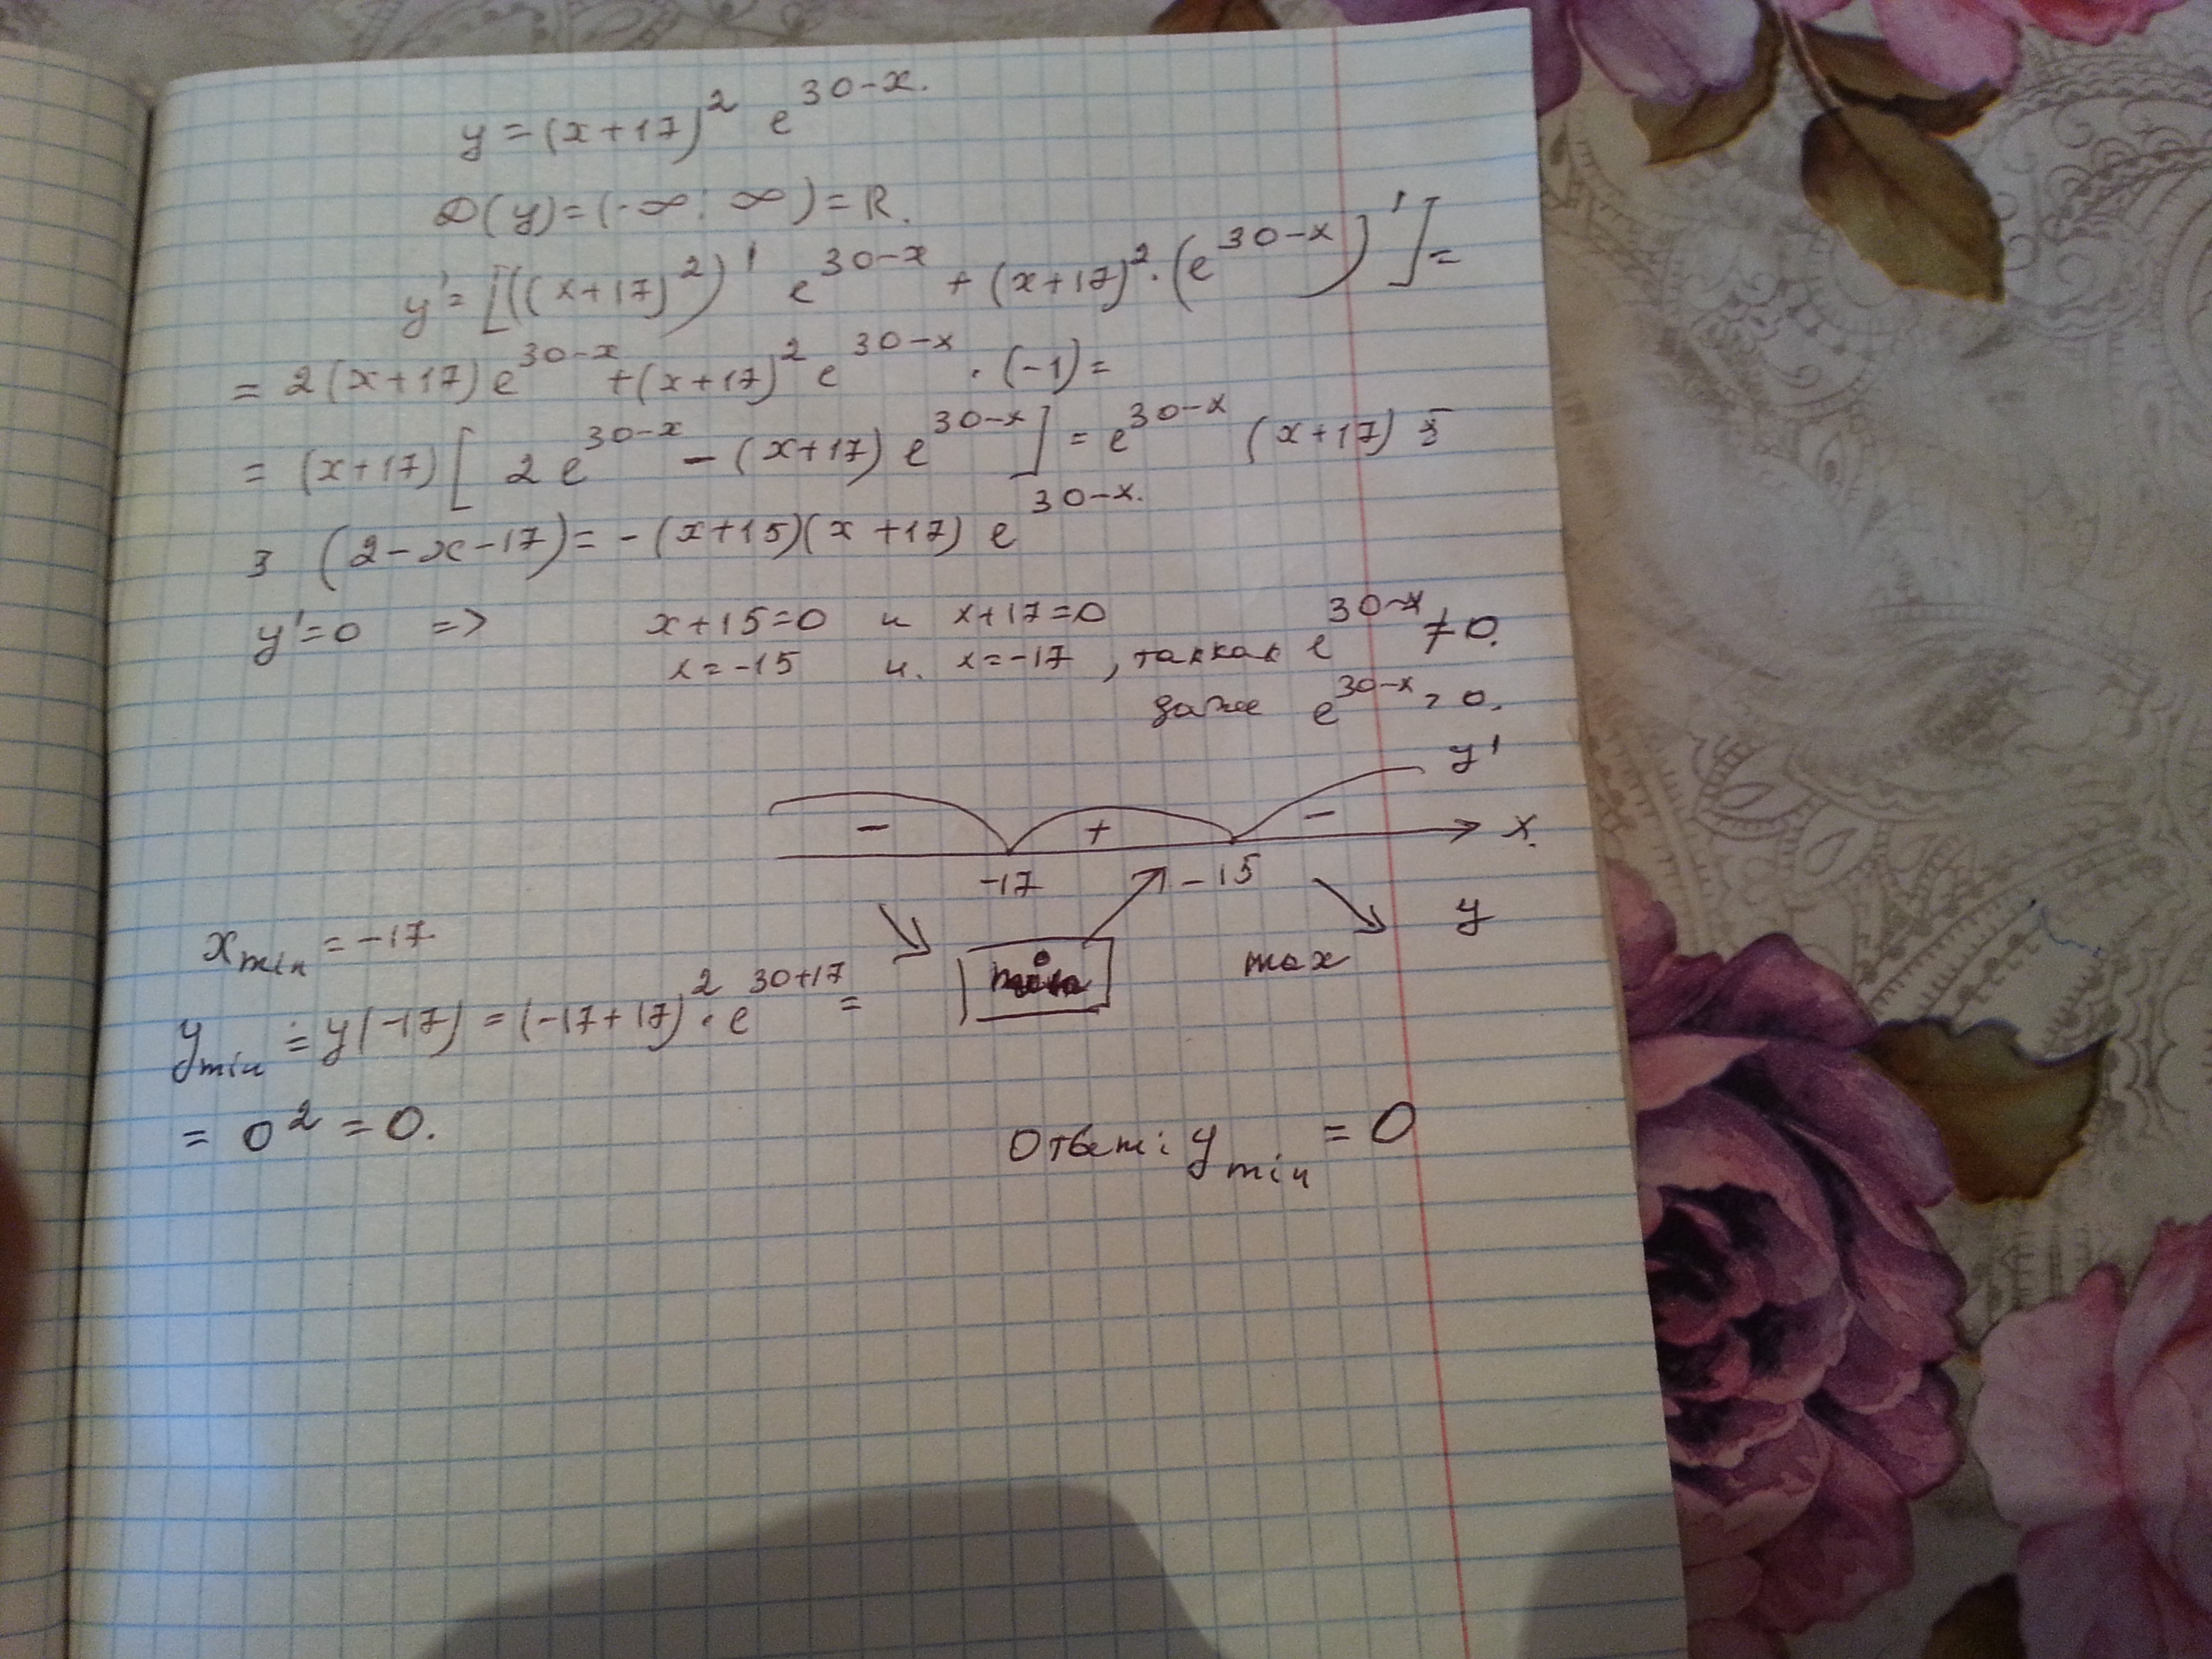 y = (x+17)² e^(30-x).
D(y) = (-∞; ∞) = R.
y' = [((x+17)²)' e^(30-x) + (x+17)² · (e^(30-x))'] =
= 2(x+17) e^(30-x) + (x+17)² e^(30-x) · (-1) =
= (x+17) [2 e^(30-x) - (x+17) e^(30-x)] = e^(30-x) (x+17)
(2-x-17) = -(x+15)(x+17) e^(30-x).
y' = 0 => x+15=0 и x+17=0
x = -15 и. x = -17, так как e^(30-x) ≠ 0.
даже e^(30-x) > 0.
y'
- + - x.
-17 -15
y
min max
x_min = -17.
y_min = y(-17) = (-17+17)² · e^(30+17) =
= 0² = 0.
Ответ: y_min = 0